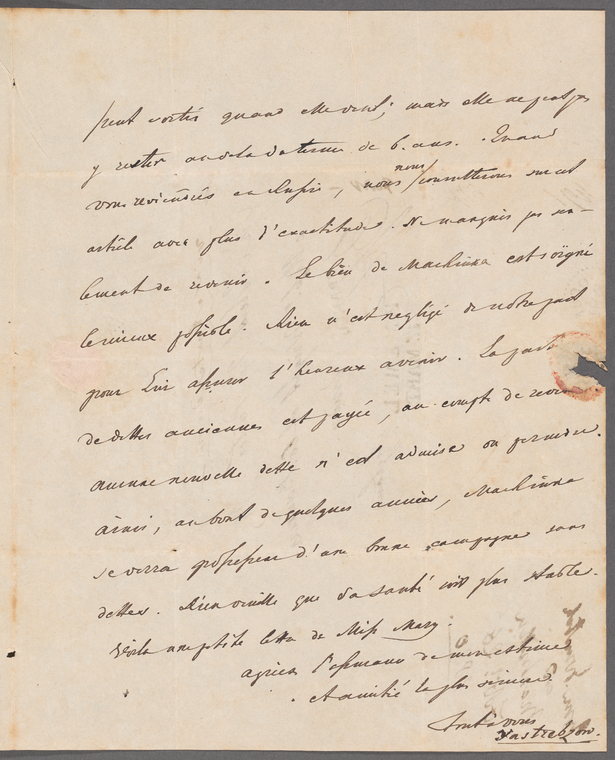 peut sortir quand elle veut; mais elle ne peut pas
y rester au dela du terme de 6. ans. Quand
vous reviendrés en Russie, nous nous consulterons sur cet
article avec plus d'exactitude. Ne manquez pas
lement de revenir. Le bien de Machinka est soigné
le mieux possible. Rien n'est negligé de notre part
pour Lui assurer l'heureux avenir. La part
de dettes anciennes est payée, au compte de
aucune nouvelle dette n'est admise ou permise.
ainsi, au bout de quelques années, Machinka
se verra possesseur d'une bonne campagne sans
dettes. Dieu veuille que sa santé soit plus stable.
Voila une petite lettre de Miss Mary.
agréez l'assurance de mon estime
et amitié la plus sincère
Tout à vous
Yastrebzow.